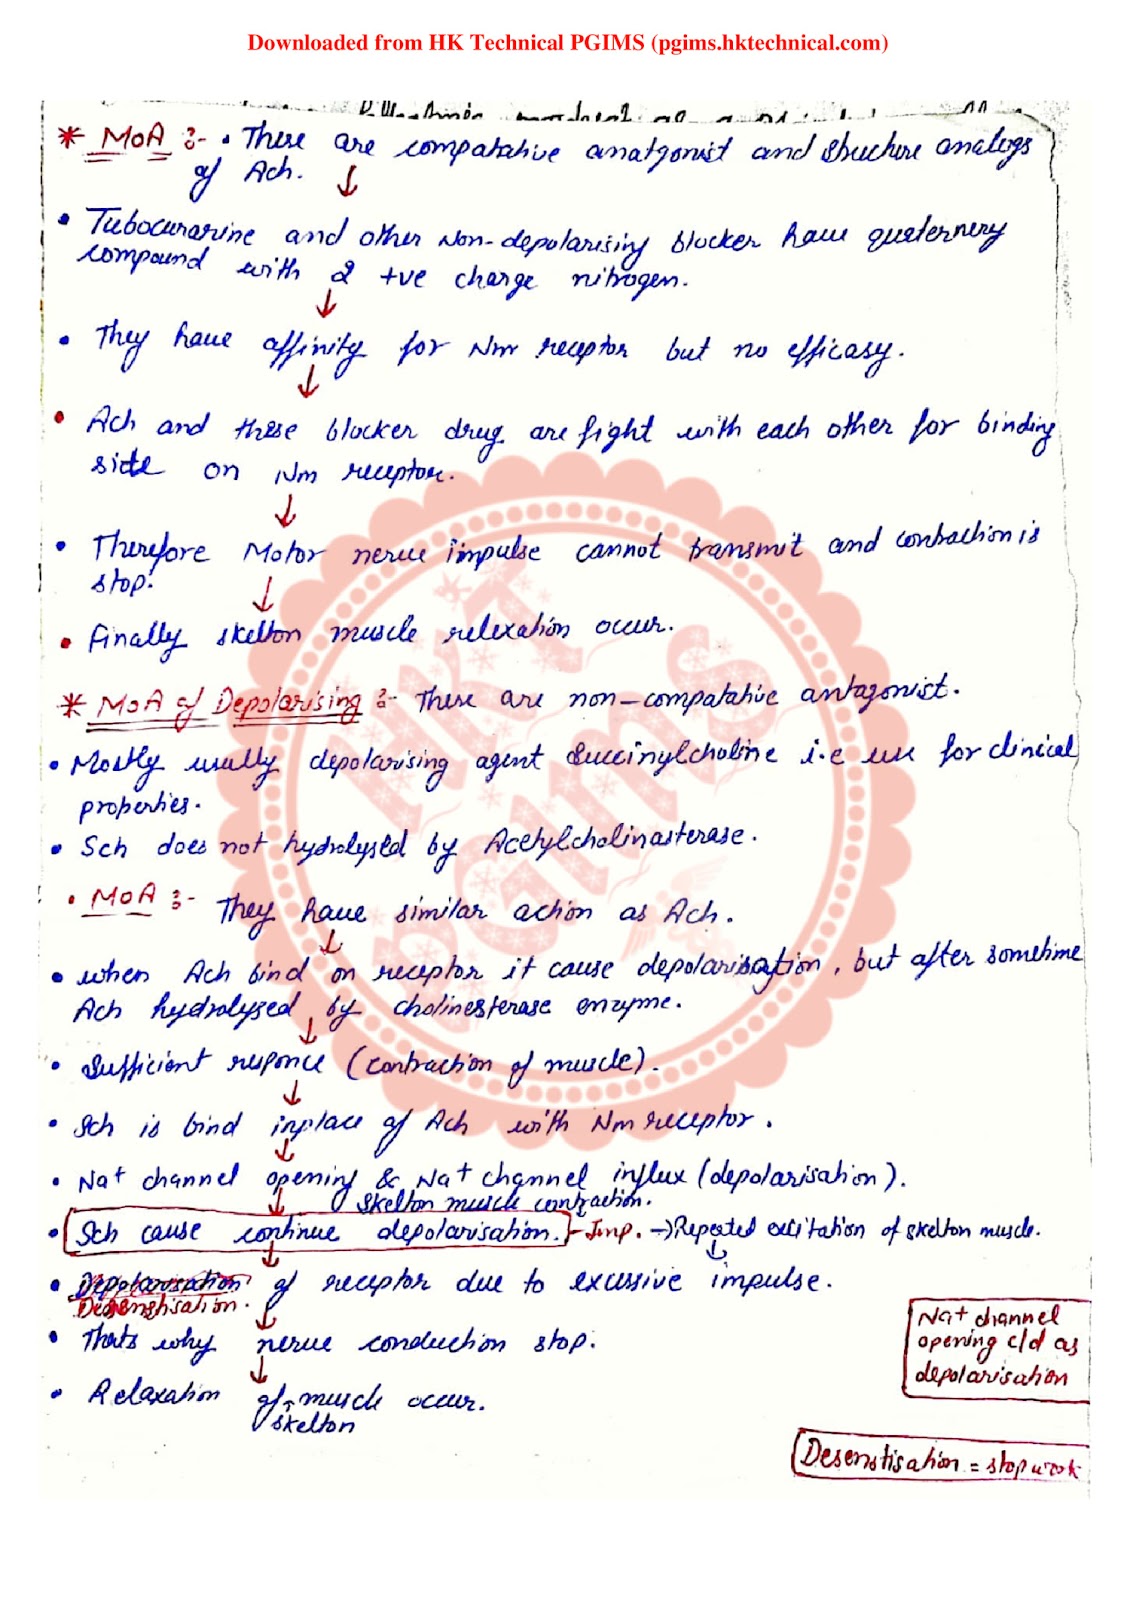 Downloaded from HK Technical PGIMS (pgims.hktechnical.com)
* MoA :- • These are compatative anatgonist and structure analogs
of Ach.
• Tubocurarine and other Non-depolarising blocker have quaternery
compound with 2 +ve charge nitrogen.
• They have affinity for Nm receptor but no efficasy.
• Ach and these blocker drug are fight with each other for binding
side on Nm receptor.
• Therefore Motor nerve impulse cannot transmit and contraction is
stop.
• Finally skelton muscle relexation occur.
* MoA of Depolarising :- These are non-compatative antagonist.
• Mostly usully depolarising agent Succinylcholine i.e use for clinical
properties.
• Sch does not hydrolysed by Acetylcholinasterase.
• MoA :- They have similar action as Ach.
• when Ach bind on receptor it cause depolarisation, but after sometime
Ach hydrolysed by cholinesterase enzyme.
• Sufficient responce (contraction of muscle).
• Sch is bind inplace of Ach with Nm receptor.
• Na+ channel opening & Na+ channel influx (depolarisation).
skelton muscle contraction.
• Sch cause continue depolarisation. - Imp. → Repeated excitation of skelton muscle.
• Depolarisation of receptor due to excessive impulse.
Desenstisation.
• Thats why nerve conduction stop.
Na+ channel
opening c/d as
depolarisation
• Relaxation of muscle occur.
skelton
Desenstisation = stop work
HKT
PGIMS